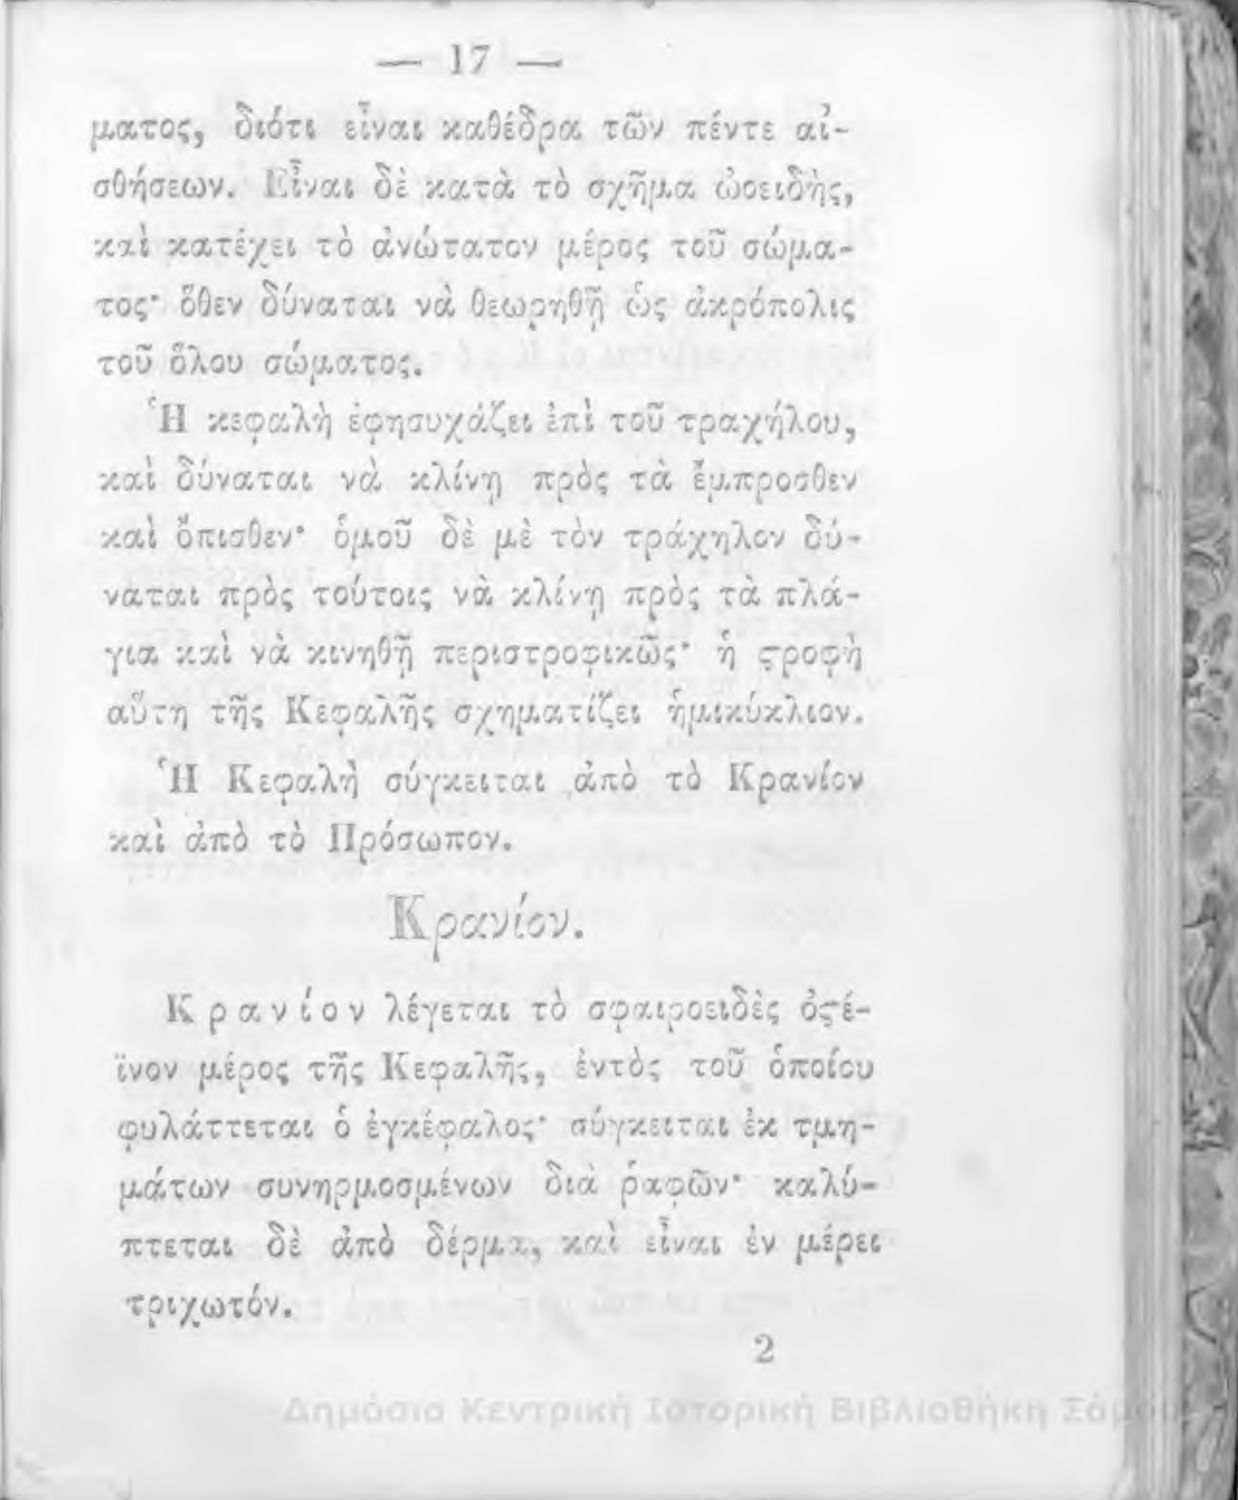 — 17 —
ματος, διότι εἶναι καθέδρα τῶν πέντε αἰ-
σθήσεων. Εἶναι δὲ κατὰ τὸ σχῆμα ὠοειδὴς,
καὶ κατέχει τὸ ἀνώτατον μέρος τοῦ σώμα-
τος· ὅθεν δύναται νὰ θεωρηθῇ ὡς ἀκρόπολις
τοῦ ὅλου σώματος.
Ἡ κεφαλὴ ἐφησυχάζει ἐπὶ τοῦ τραχήλου,
καὶ δύναται νὰ κλίνῃ πρὸς τὰ ἔμπροσθεν
καὶ ὄπισθεν· ὁμοῦ δὲ μὲ τὸν τράχηλον δύ-
ναται πρὸς τούτοις νὰ κλίνῃ πρὸς τὰ πλά-
για καὶ νὰ κινηθῇ περιστροφικῶς· ἡ ϛροφὴ
αὕτη τῆς Κεφαλῆς σχηματίζει ἡμικύκλιον.
Ἡ Κεφαλὴ σύγκειται ἀπὸ τὸ Κρανίον
καὶ ἀπὸ τὸ Πρόσωπον.
Κρανίον.
Κρανίον λέγεται τὸ σφαιροειδὲς ὀϛέ-
ϊνον μέρος τῆς Κεφαλῆς, ἐντὸς τοῦ ὁποίου
φυλάττεται ὁ ἐγκέφαλος· σύγκειται ἐκ τμη-
μάτων συνηρμοσμένων διὰ ῥαφῶν· καλύ-
πτεται δὲ ἀπὸ δέρμα, καὶ εἶναι ἐν μέρει
τριχωτόν.
2
Δημόσια Κεντρική Ιστορική Βιβλιοθήκη Σάμου